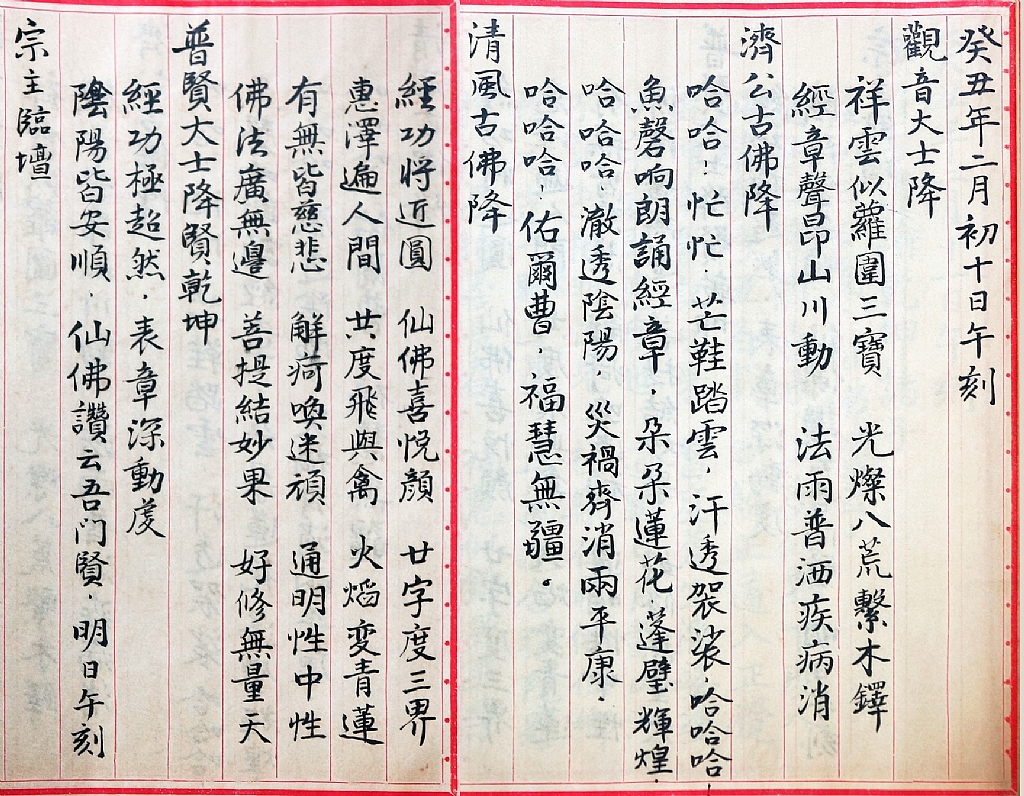 癸丑年二月初十日午刻
觀音大士降
祥雲似蘿圍三寶　光燦八荒繫木鐸
經章聲昂山川動　法雨普洒疾病消
濟公古佛降
哈哈！忙忙．芒鞋踏雲，汗透袈裟．哈哈哈！
魚磬响朗誦經章，朵朵蓮花．蓬璧輝煌．
哈哈哈．澈透陰陽，災禍齊消兩平康．
哈哈哈！佑爾曹，福慧無疆。
清風古佛降
經功將近圓　仙佛喜悅顏　廿字度三界
惠澤遍人間　共度飛與禽　火焰変青蓮
有無皆慈悲　解疴喚迷頑　通明性中性
佛法廣無邊　菩提結妙果　好修無量天
普賢大士降賢乾坤
經功極超然．表章深動虔
陰陽皆安順．仙佛讚云吾门賢．明日午刻
宗主臨壇